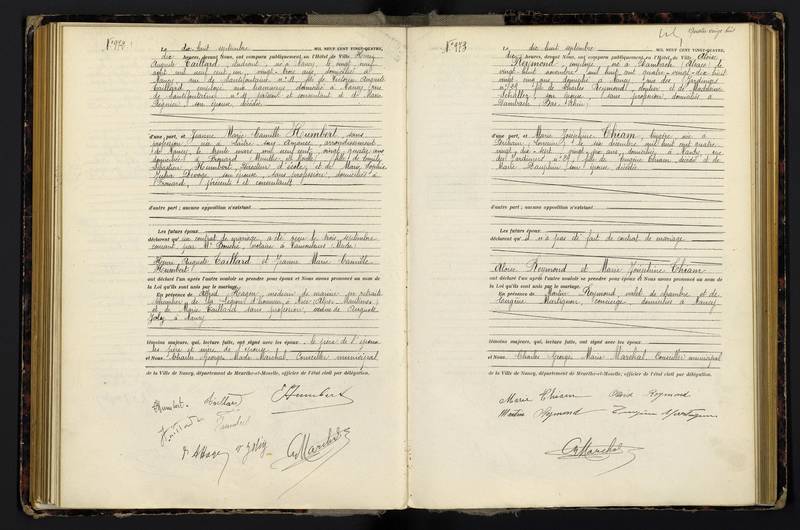 N°972
Le dix huit septembre MIL NEUF CENT VINGT-QUATRE,
dix heures, devant Nous, ont comparu publiquement en l'Hôtel de Ville Henri
Auguste Caillard, étudiant, né à Nancy, le vingt neuf
août mil neuf cent un, vingt trois ans, domicilié à
Nancy, rue de n° 11, fils de Victorin Auguste
Caillard, employé aux tramways domicilié à Nancy, rue
de n° 11 présent et consentant et de Marie
son épouse, décédée
d'une part, et Jeanne Marie Camille Humbert, sans
profession, née à Laître sous Amance, arrondissement
de Nancy, le mars mil neuf cent, vingt quatre ans
domiciliée à Crouard, Meurthe et Moselle, fille de Camille
Sébastien Humbert, Directeur d'école, et de Marie Sophie
Julia son épouse, sans profession, domiciliés à
présents et consentants
d'autre part ; aucune opposition n'existant.
Les futurs époux
déclarent qu'un contrat de mariage a été reçu le trois septembre
courant par Me notaire à
Henri Auguste Caillard et Jeanne Marie Camille
Humbert
ont déclaré l'un après l'autre vouloir se prendre pour époux et Nous avons prononcé au nom de
la Loi qu'ils sont unis par le mariage.
En présence de Alfred médecin de marine en retraite
de la Légion d'honneur, à Nice Alpes Maritimes,
et de Marie Caillard sans profession, veuve de Auguste
Joly à Nancy
témoins majeurs, qui, lecture faite, ont signé avec les époux, le père de l'époux
les père et mère de l'épouse
et Nous, Charles Georges Marie Marchal, Conseiller municipal
de la Ville de Nancy, département de Meurthe-et-Moselle, officier de l'état civil par délégation.
JHumbert. Caillard Humbert
Ve Joly
GMarchal
Quatre vingt huit
N°973
Le dix huit septembre MIL NEUF CENT VINGT-QUATRE,
dix heures, devant Nous, ont comparu publiquement en l'Hôtel de Ville Aloïse
Reymond, employé, né à Dambach, Alsace, le
vingt huit novembre mil huit cent quatre-vingt-dix huit
vingt cinq ans, domicilié à Nancy, rue des Jardiniers
n° 29, fils de Charles Reymond, et de Madeleine
son épouse, sans profession, domiciliés à
Dambach (Bas-Rhin)
d'une part, et Marie Joséphine Chiam, née à
Lorraine, le six décembre mil huit cent quatre
vingt dix-sept vingt six ans, domiciliée à Nancy, rue
des Jardiniers n° 29, fille de Eugène Chiam, décédé et de
Marie Dauphin son épouse décédée
d'autre part ; aucune opposition n'existant.
Les futurs époux
déclarent qu'il n'a pas été fait de contrat de mariage
Aloïse Reymond et Marie Joséphine Chiam
ont déclaré l'un après l'autre vouloir se prendre pour époux et Nous avons prononcé au nom de
la Loi qu'ils sont unis par le mariage.
En présence de Martin Reymond, valet de chambre et de
Eugène concierge, domiciliés à Nancy
témoins majeurs, qui, lecture faite, ont signé avec les époux
et Nous, Charles Georges Marie Marchal, Conseiller municipal
de la Ville de Nancy, département de Meurthe-et-Moselle, officier de l'état civil par délégation.
Marie Chiam Reymond
Martin Reymond Eugène
GMarchal